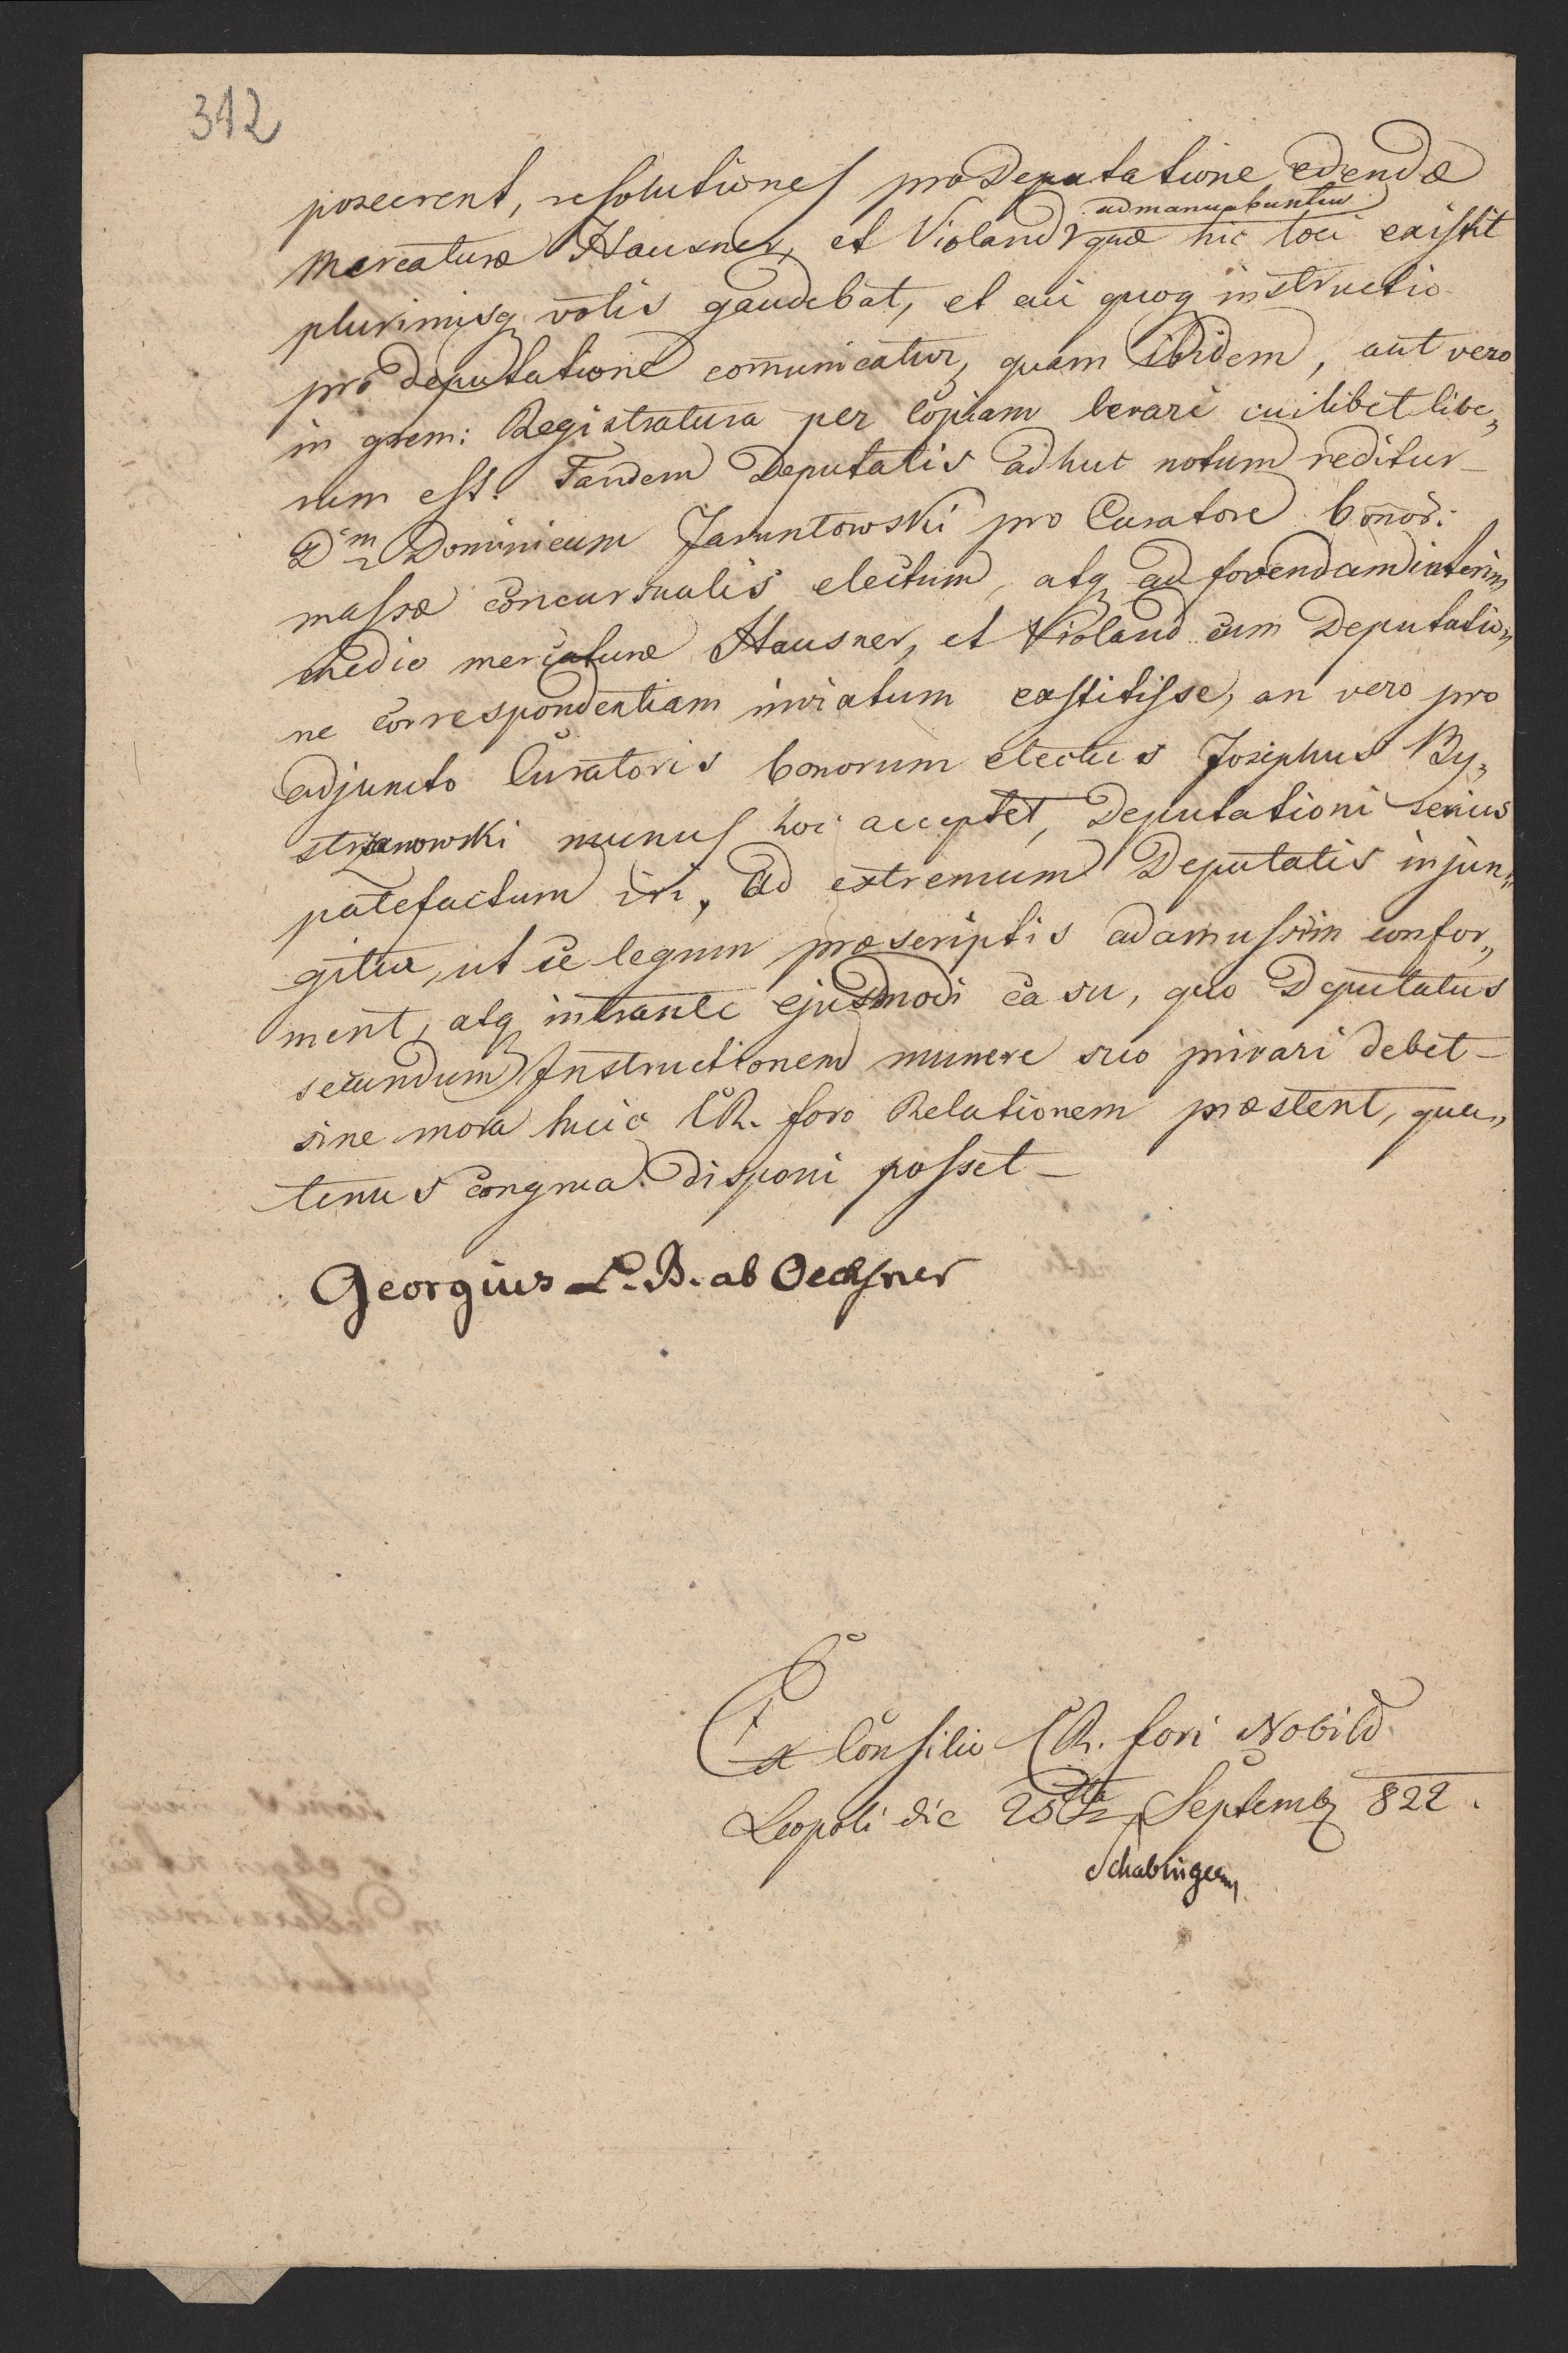 312
poscerent, resolutiones pro Deputatione edendæ
admanuabuntur
Mercaturæ Hausner, et Violand quæ hic loci existit
plurimisq votis gaudebat, et cui quoq instructio
pro deputatione comunicatur, quam ibidem, aut vero
in grem: Registratura per Copiam levare cuilibet libe„
rum est. Tandem Deputatis adhuc notum reditur
Dm Dominicum Jaruntowski pro Curatore bonor:
massæ concursualis electum, atq ad fovendam interim
medio mercaturæ Hausner, et Violand cum Deputatio„
ne correspondentiam inviatum exstitisse, an vero pro
adjuncto Curatoris bonorum electus Josephus By„
strzanowski munus hoc acceptet, Deputationi serius
patefactum iri, Ad extremum Deputatis injun„
gitur, ut se legum præscriptis adamussim confor„
ment, atq intrante ejusmodi casu, quo Deputatus
secundum Instructionem munere suo privari debet
sine mora huic CR. foro Relationem præstent, qua„
tenus congrua disponi posset
Georgius L. B. ab Oechsner
Ex Consilio CR. fori Nobil
Leopoli die 25ta Septemb 822.